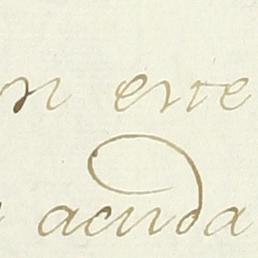 n este
acuda